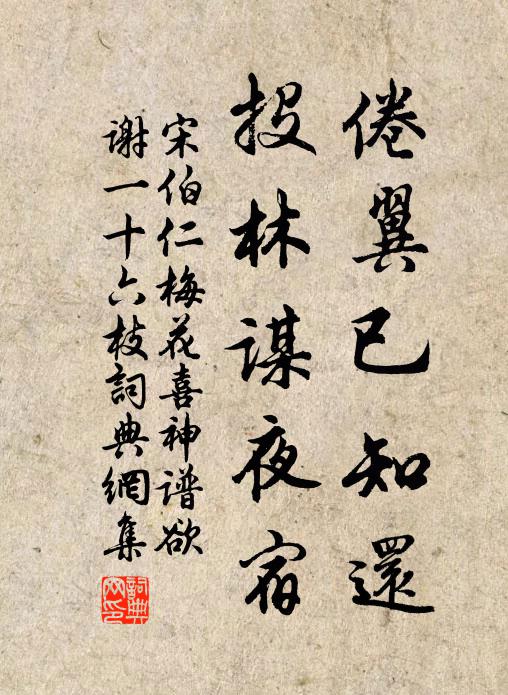 倦翼已知還
投林謀夜宿
宋伯仁梅花喜神谱欲
谢一十六枝詞典網集
詞典網印